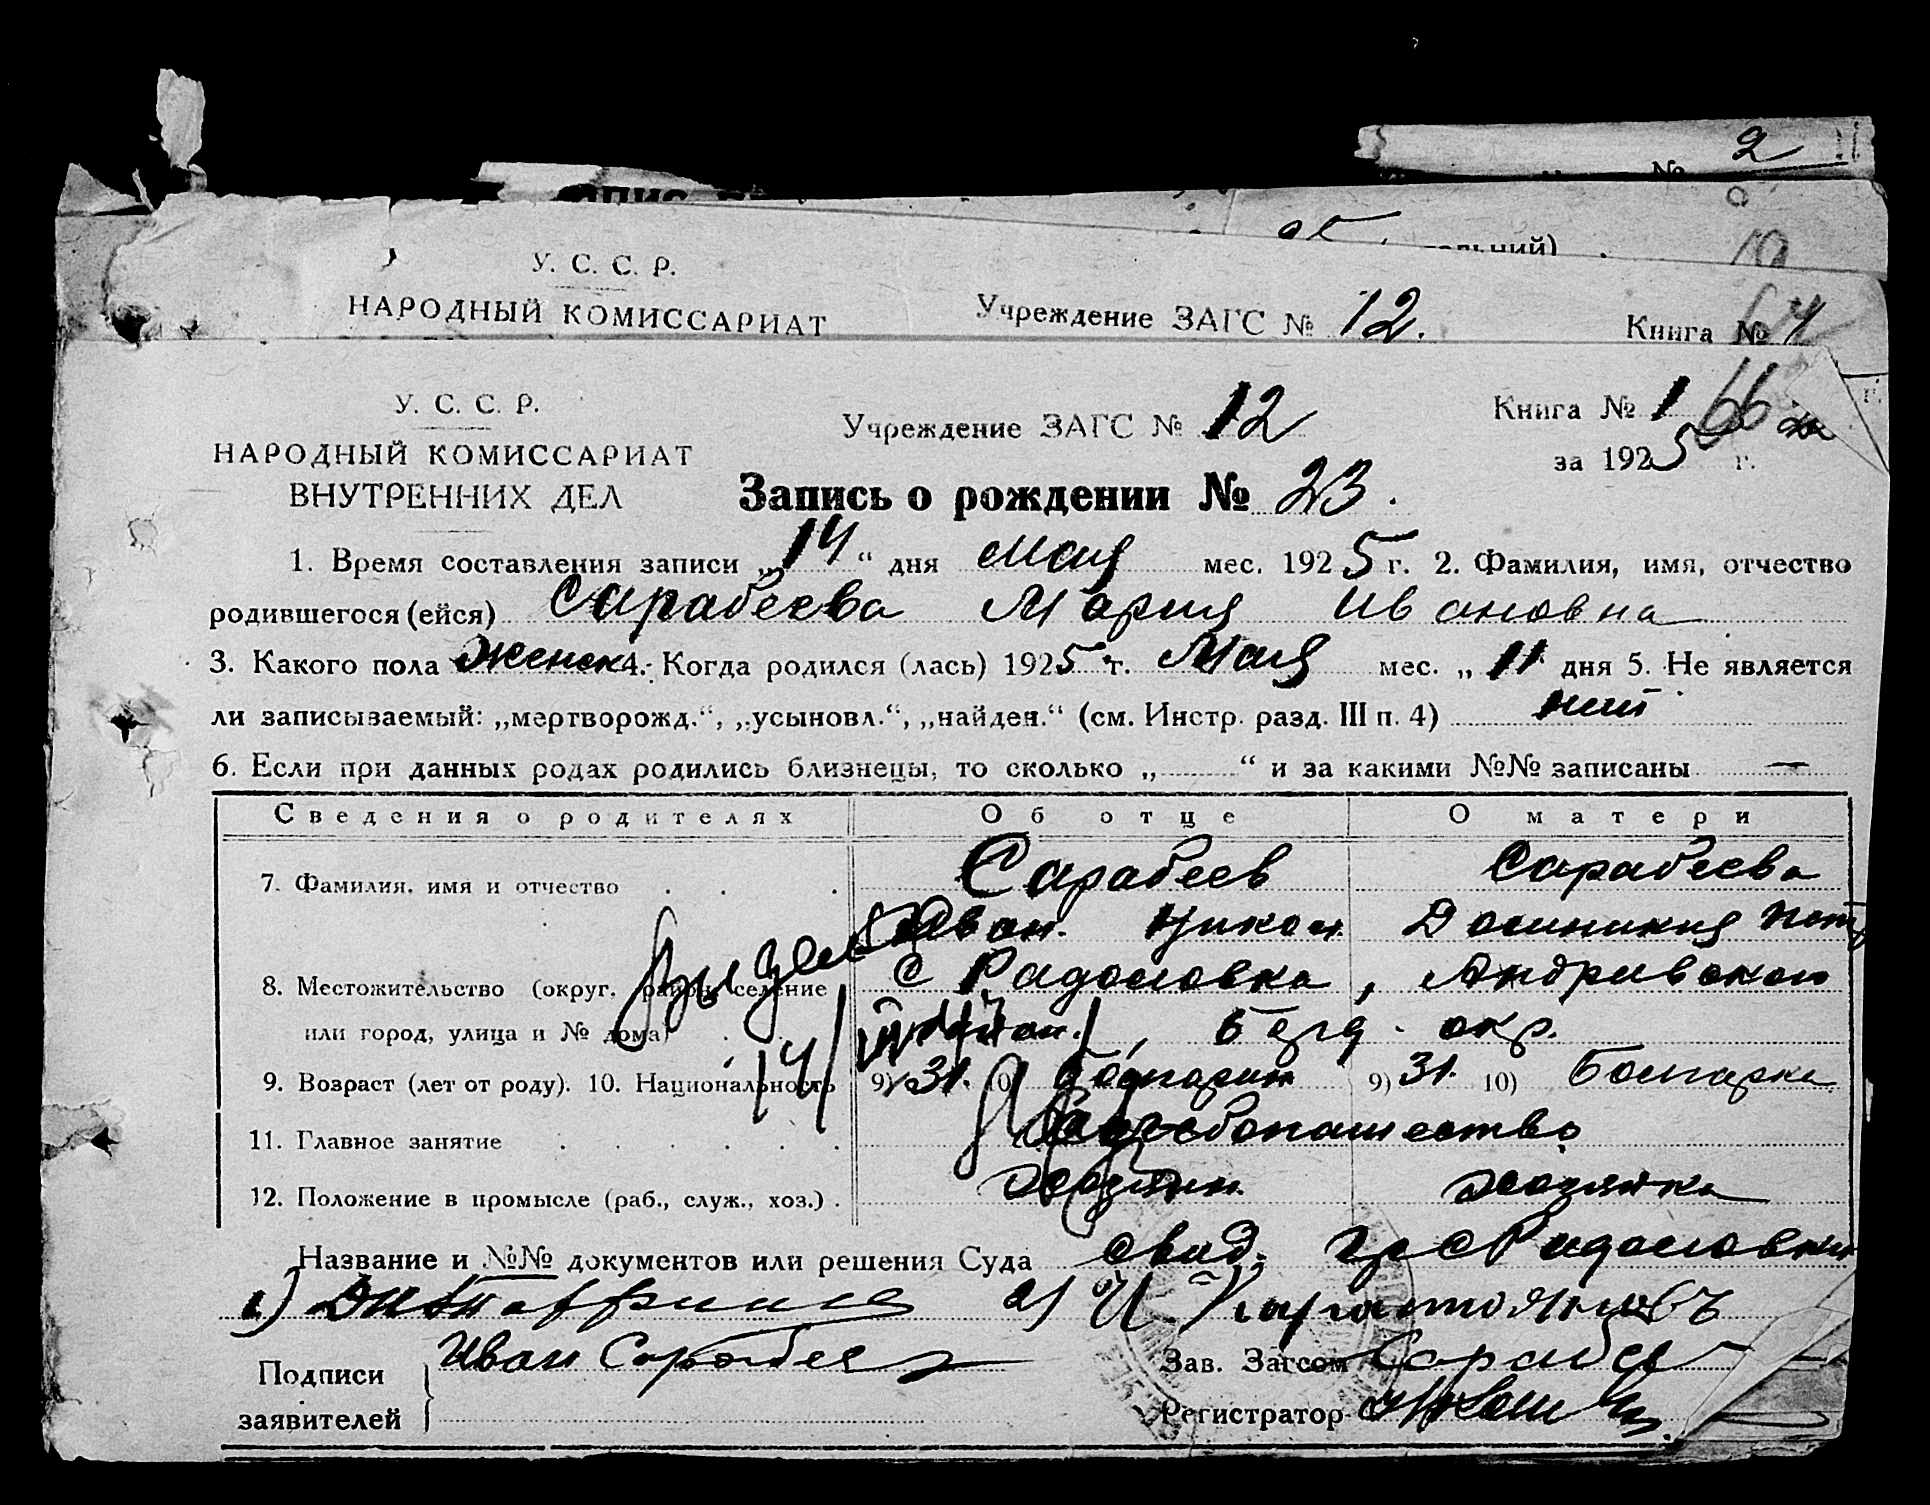 № 2
У. С. С. Р.
НАРОДНЫЙ КОМИССАРИАТ
Учреждение ЗАГС № 12.
Книга №
У. С. С. Р.
НАРОДНЫЙ КОМИССАРИАТ
ВНУТРЕННИХ ДЕЛ
Учреждение ЗАГС № 12
Книга № 1 66
за 1925 г.
Запись о рождении № 23.
1. Время составления записи „14“ дня Мая мес. 1925 г. 2. Фамилия, имя, отчество
родившегося (ейся) Сарабеева Мария Ивановна
3. Какого пола Женск 4. Когда родился (лась) 1925 г. Мая мес. „11 дня 5. Не является
ли записываемый: „мертворожд.“, „усыновл.“, „найден.“ (см. Инстр. разд. III п. 4) нит
6. Если при данных родах родились близнецы, то сколько „ “ и за какими №№ записаны —
Сведения о родителях Об отце О матери
7. Фамилия, имя и отчество Сарабеев Сарабеева
Иван. Никол. Доминикия
8. Местожительство (округ, район, селение с Радоловка, Андривского
или город, улица и № дома) район, Бердя. окр.
9. Возраст (лет от роду). 10. Национальность 9) 31. 10) Болгарин 9) 31. 10) Болгарка
11. Главное занятие Хлебопашество
12. Положение в промысле (раб., служ., хоз.) Хозяин. Хозяйка
Название и №№ документов или решения Суда свид.
Подписи
заявителей
Иван Сарабеев
Зав. Загсом Сарабев
Регистратор